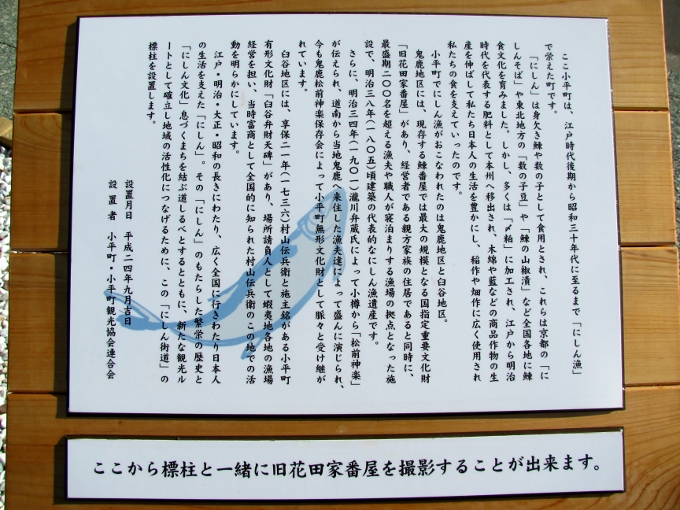 ここ小平町は、江戸時代後期から昭和三十年代に至るまで「にしん漁」
で栄えた町です。
「にしん」は身欠き鰊や数の子として食用とされ、これらは京都の「に
しんそば」や東北地方の「数の子豆」や「鰊の山椒漬」など全国各地に鰊
食文化を育みました。しかし、多くは「〆粕」に加工され、江戸から明治
時代を代表する肥料として本州へ移出され、木綿や藍などの商品作物の生
産を伸ばして私たち日本人の生活を豊かにし、稲作や畑作に広く使用され
私たちの食を支えていったのです。
小平町でにしん漁がおこなわれたのは鬼鹿地区と臼谷地区。
鬼鹿地区には、現存する鰊番屋では最大の規模となる国指定重要文化財
「旧花田家番屋」があり、経営者である親方家族の住居であると同時に、
最盛期二〇〇名を超える漁夫や職人が寝泊まりする漁場の拠点となった施
設で、明治三八年(一八〇五)頃建築の代表的なにしん漁遺産です。
さらに、明治三四年(一九〇一)瀧川弁蔵氏によって小樽から「松前神楽」
が伝えられ、道南から当地鬼鹿へ来住した漁夫達によって盛んに演じられ、
今も鬼鹿松前神楽保存会によって小平町無形文化財として脈々と受け継が
れています。
臼谷地区には、享保二一年(一七三六)村山伝兵衛と施主銘がある小平町
有形文化財「臼谷弁財天碑」があり、場所請負人として蝦夷地各地の漁場
経営を担い、当時富商として全国的に知られた村山伝兵衛のこの地での活
動を明らかにしています。
江戸・明治・大正・昭和の長きにわたり、広く全国に行きわたり日本人
の生活を支えた「にしん」。その「にしん」のもたらした繁栄の歴史と
「にしん文化」息づくまちを結ぶ道しるべとするとともに、新たな観光ル
ートとして確立し地域の活性化につなげるために、この「にしん街道」の
標柱を設置します。
設置月日 平成二四年九月吉日
設置者 小平町・小平町観光協会連合会
ここから標柱と一緒に旧花田家番屋を撮影することが出来ます。